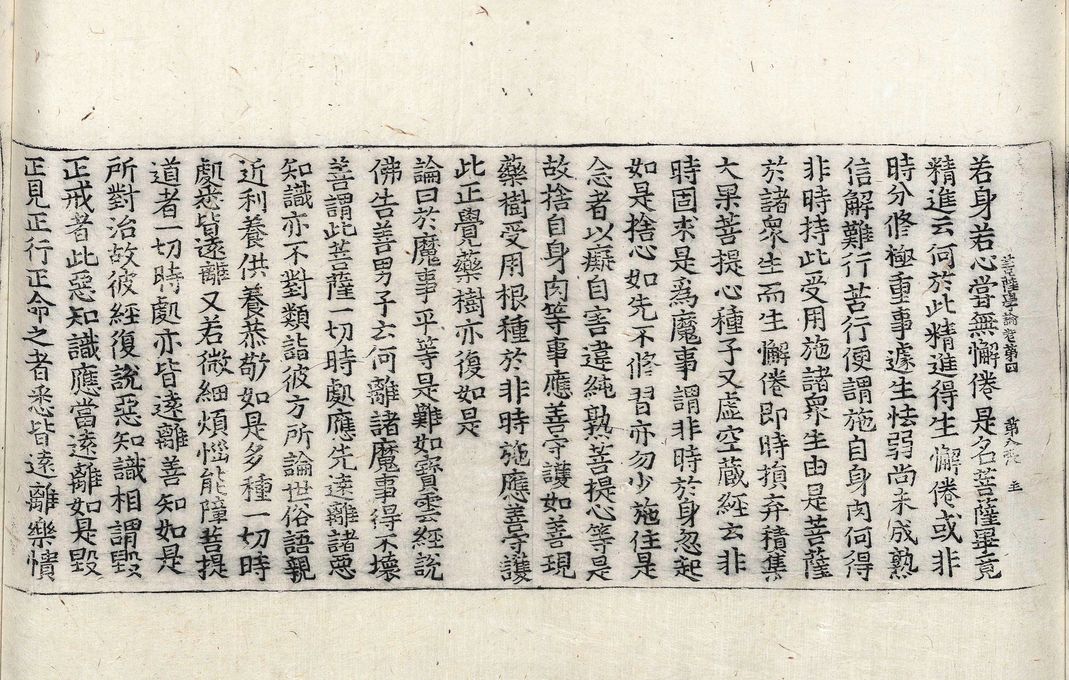 菩薩學論卷第四 第八張 主
若身若心甞無懈倦是名菩薩畢竟
精進云何於此精進得生懈倦或非
時分修極重事遽生怯弱尚未成熟
信解難行苦行便謂施自身肉何得
非時持此受用施諸衆生由是菩薩
於諸衆生而生懈倦即時損弃積集
大果菩提心種子又虛空藏經云非
時固求是爲魔事謂非時於身忽起
如是捨心如先不修習亦勿少施住是
念者以癡自害違純熟菩提心等是
故捨自身肉等事應善守護如善現
藥樹受用根種於非時施應善守護
此正覺藥樹亦復如是
論曰於魔事平等是難如寳雲經說
佛告善男子云何離諸魔事得不壞
善謂此菩薩一切時處應先遠離諸惡
知識亦不對類詣彼方所論世俗語親
近利養供養恭敬如是多種一切時
處悉皆遠離又若微細煩惱能障菩提
道者一切時處亦皆遠離善知如是
所對治故彼經復說惡知識相謂毀
正戒者此惡知識應當遠離如是毀
正見正行正命之者悉皆遠離樂憒